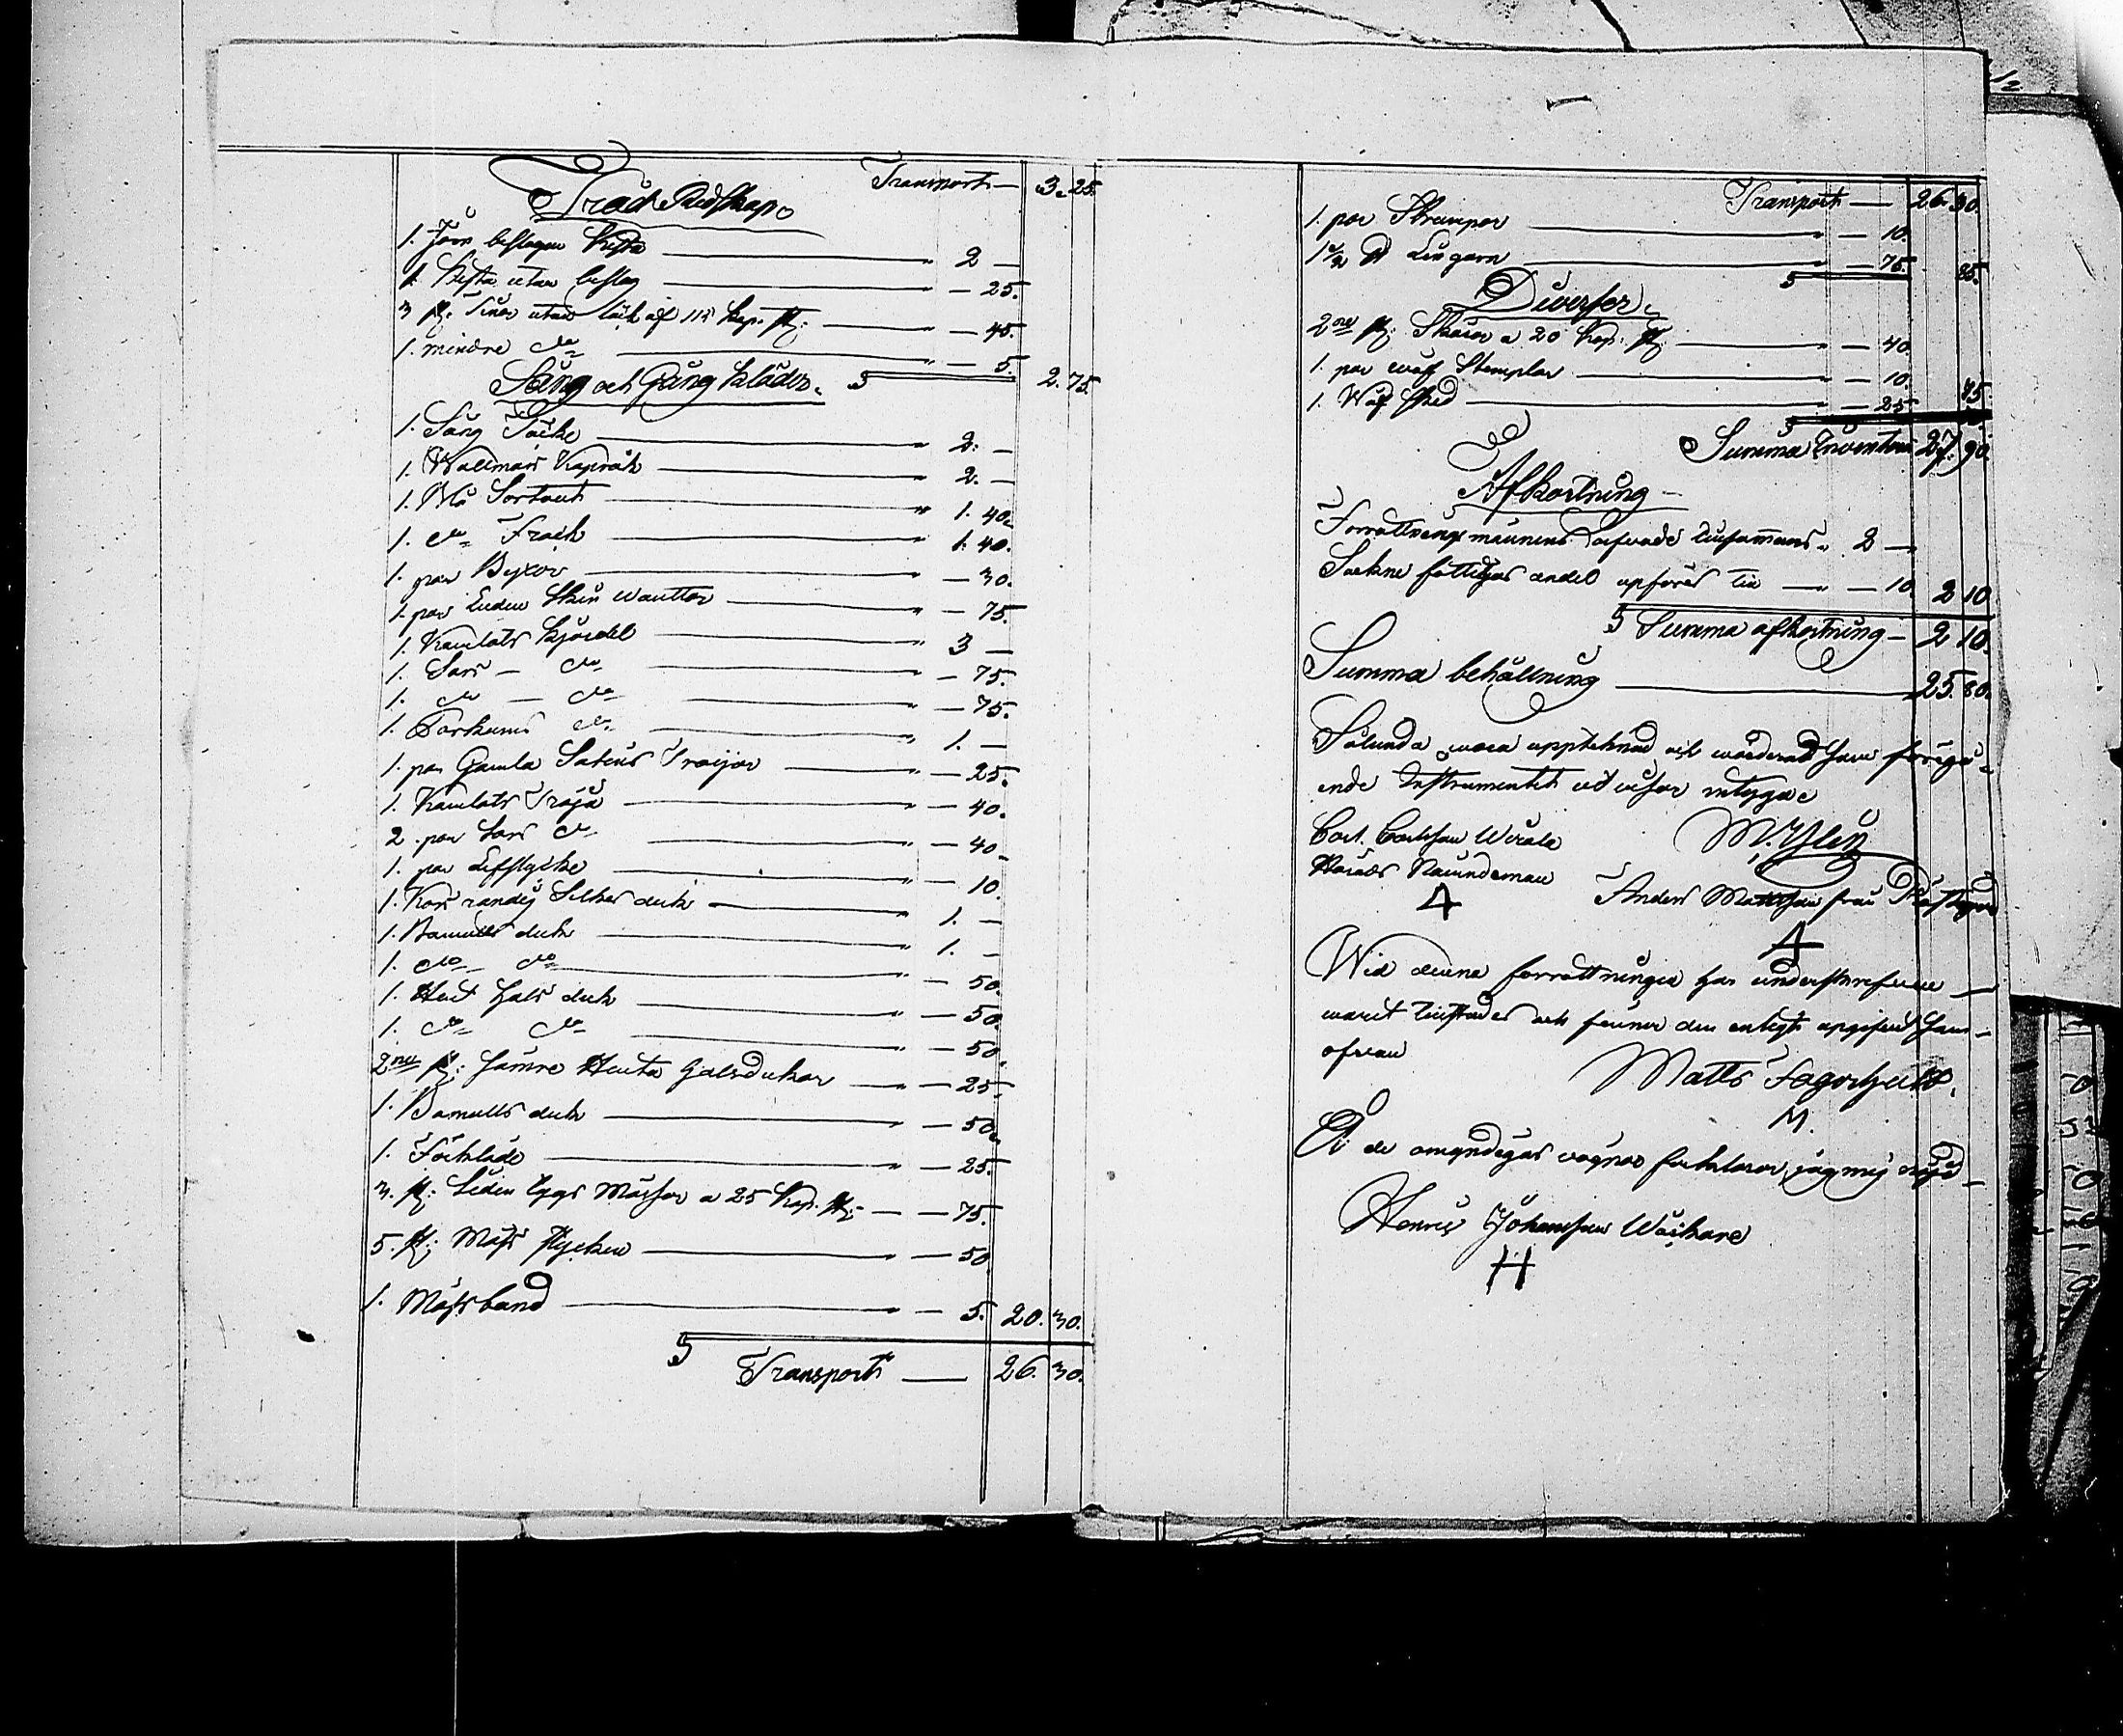 Transport — 3. 25.
Träd Redskap.
1. Järn beslagen Kista — 2 —
1. Kista utan beslag — 25.
3 st. Tinor utan låck af 15 kop. st. — 45.
1. mindre do — 5. 2. 75.
Säng och Gång kläder.
1. Säng Täcke — 2. —
1. Wallmars Kapråck — 2. —
1. Blå Sortout — 1. 40.
1. do Frack — 1. 40.
1. par Byxor — 30.
1. par Luden Skin wanttar — 75.
1. Kamlots kjordel — 3 —
1. Sars — do — 75.
1. do — do — 75.
1. do — 1. —
1. par Gamla Satins Tröijor — 25.
1. Kamlots Tröja — 40.
2. par Sars do — 40.
1. par Lifstycke — 10.
1. Kors randig Silkes duk — 1. —
1. Bamulls duk — 1. —
1. do do — 50.
1. Huit hals duk — 50.
1. do do — 50.
2ne st: sämre Huita Halsdukar — 25.
1. Bamulls duk — 50.
1. Förkläde — 25.
3. st: Siden tygs Mössor a 25 Kop. st: — 75.
5. st: Möss stycken — 50
1. Mössband — 5. 20. 30.
S Transport — 26. 30.
Transport — 26. 30.
1. par Strumpor — 10.
1 1/2 ℔ Lingarn — 75. 85.
Diverser.
2ne st: Skäror a 20 Kop. st: — 40.
1. par wäf Stemplar — 10.
1. Wäf sked — 25 75.
Summa Inventarii 27. 90.
Afkortning
Förrättnings männens arfwode tillsammans 2 —
Sockne fattigas andel upföres till — 10 2 10
S Summa afkortning — 2 10.
Summa behållning — 25. 80.
Sålunda wara upptecknad och wärderadt som föregå-
ende Instrumentet utwisar intygar
Carl Carlsson M. Ylén
Anders Mattsson från
Wid denna förrättningen har underskrefwen
warit tillstädes och finner den enligt upgifwit som
ofwan
Matts Fagerhult.
M.
På de omyndigas wägnar förklarar jag mig nöjd
Henric Johansson
H